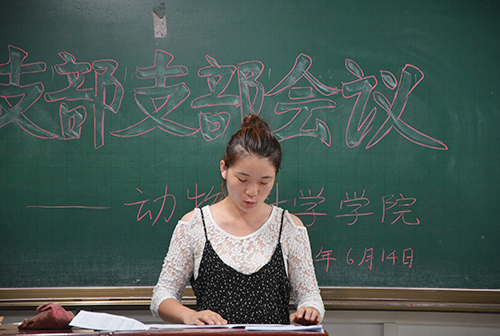 支部支部会议
—— 动物 学学院
年6月14日